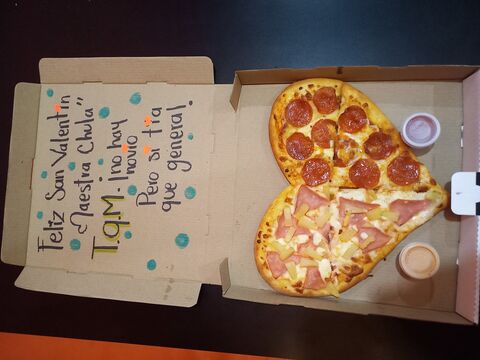 Feliz San Valentin
Maestra Chula"
T.q.M. ¡no hay
novio
Pero si tia
que general!